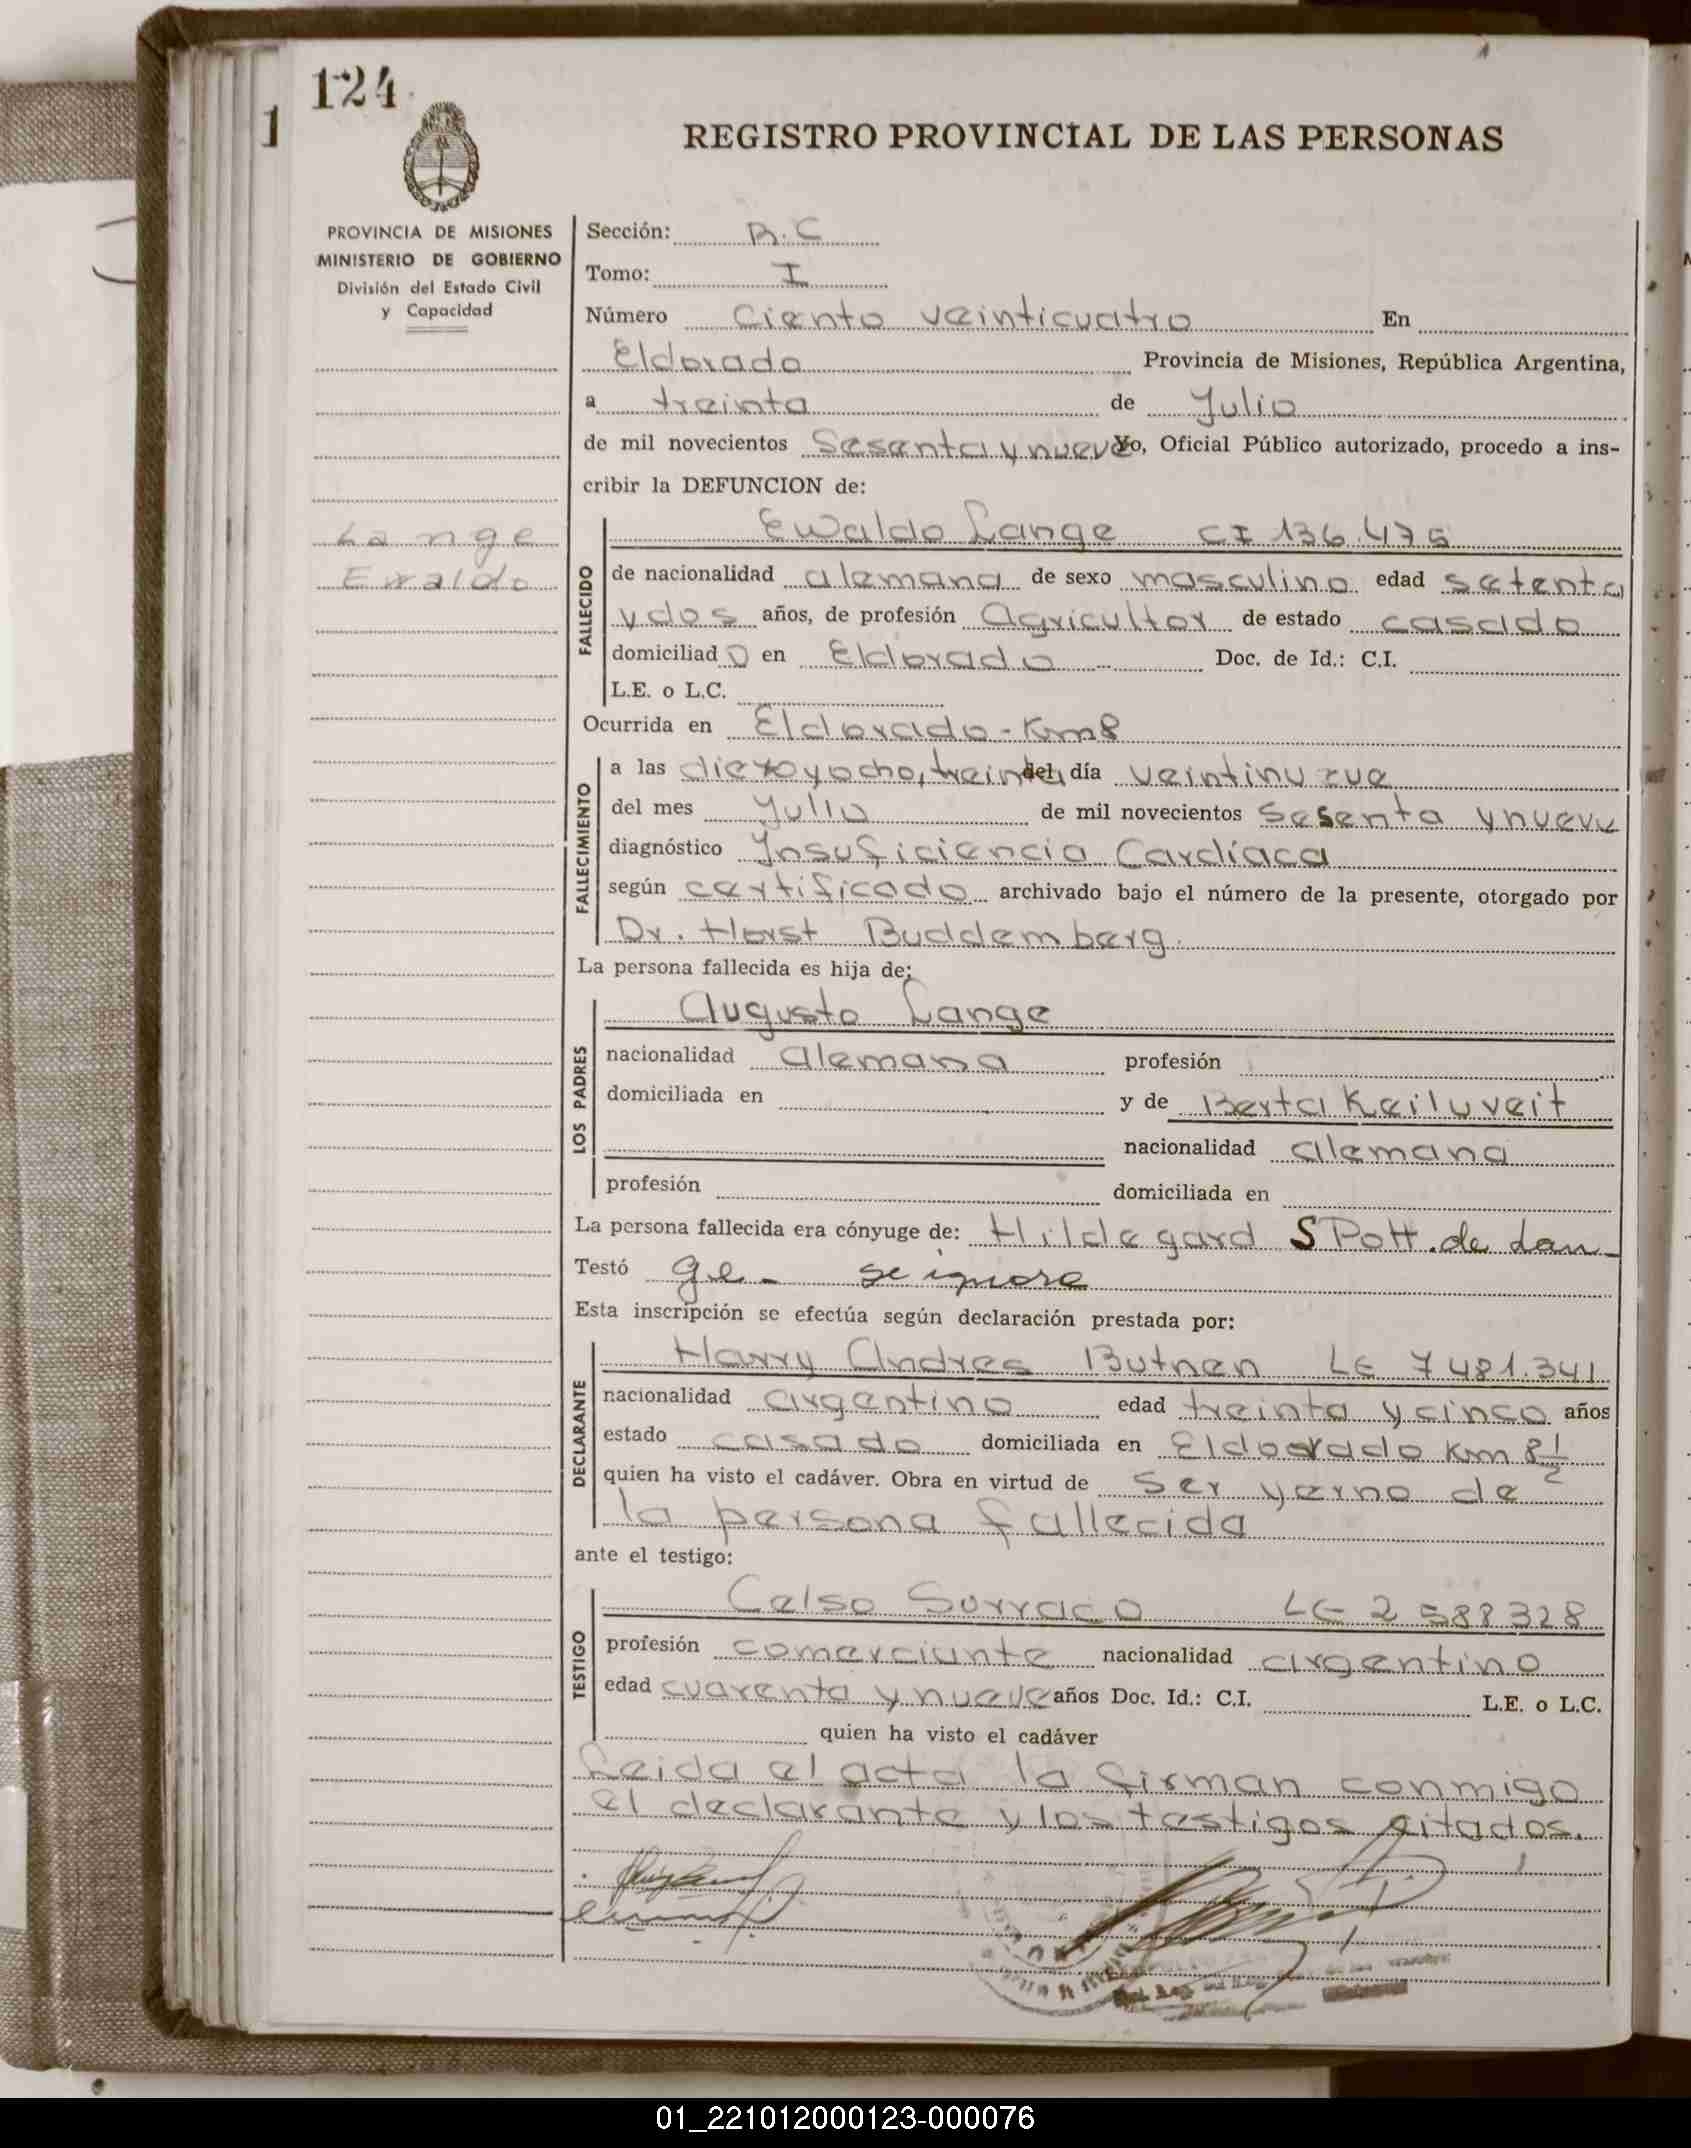 124
1
REGISTRO PROVINCIAL DE LAS PERSONAS
PROVINCIA DE MISIONES
MINISTERIO DE GOBIERNO
División del Estado Civil
y Capacidad
Lange
Ewaldo
Sección: R.C
Tomo: I
Número Ciento veinticuatro En
Eldorado Provincia de Misiones, República Argentina,
a treinta de Julio
de mil novecientos Sesenta y nueve Yo, Oficial Público autorizado, procedo a ins-
cribir la DEFUNCION de:
FALLECIDO
Ewaldo Lange CI 136.475
de nacionalidad alemana de sexo masculino edad setenta
y dos años, de profesión Agricultor de estado casado
domiciliado en Eldorado Doc. de Id.: C.I.
L.E. o L.C.
Ocurrida en Eldorado - Km 8
FALLECIMIENTO
a las diez y ocho, treinta del día veintinueve
del mes Julio de mil novecientos Sesenta y nueve
diagnóstico Insuficiencia Cardíaca
según certificado archivado bajo el número de la presente, otorgado por
Dr. Horst Buddemberg.
La persona fallecida es hija de:
LOS PADRES
Augusto Lange
nacionalidad alemana profesión
domiciliada en y de Berta Keiluveit
nacionalidad alemana
profesión domiciliada en
La persona fallecida era cónyuge de: Hildegard SPott. de Lan-
Testó ge - se ignora
Esta inscripción se efectúa según declaración prestada por:
DECLARANTE
Harry Andres Butnen LE 7481.341
nacionalidad argentino edad treinta y cinco años
estado casado domiciliada en Eldorado Km 8 1/2
quien ha visto el cadáver. Obra en virtud de Ser yerno de
la persona fallecida
ante el testigo:
TESTIGO
Celso Sorraco LE 2588328
profesión comerciante nacionalidad argentino
edad cuarenta y nueve años Doc. Id.: C.I. L.E. o L.C.
quien ha visto el cadáver
Leida el acta la firman conmigo
el declarante y los testigos citados.
01_221012000123-000076